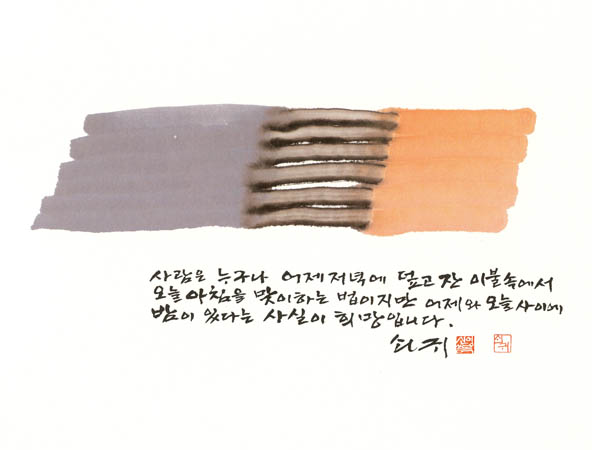 사람은 누구나 어제저녁에 덮고 잔 이불속에서
오늘 아침을 맞이하는 법이지만 어제와 오늘 사이에
밤이 있다는 사실이 희망입니다.
쇠귀